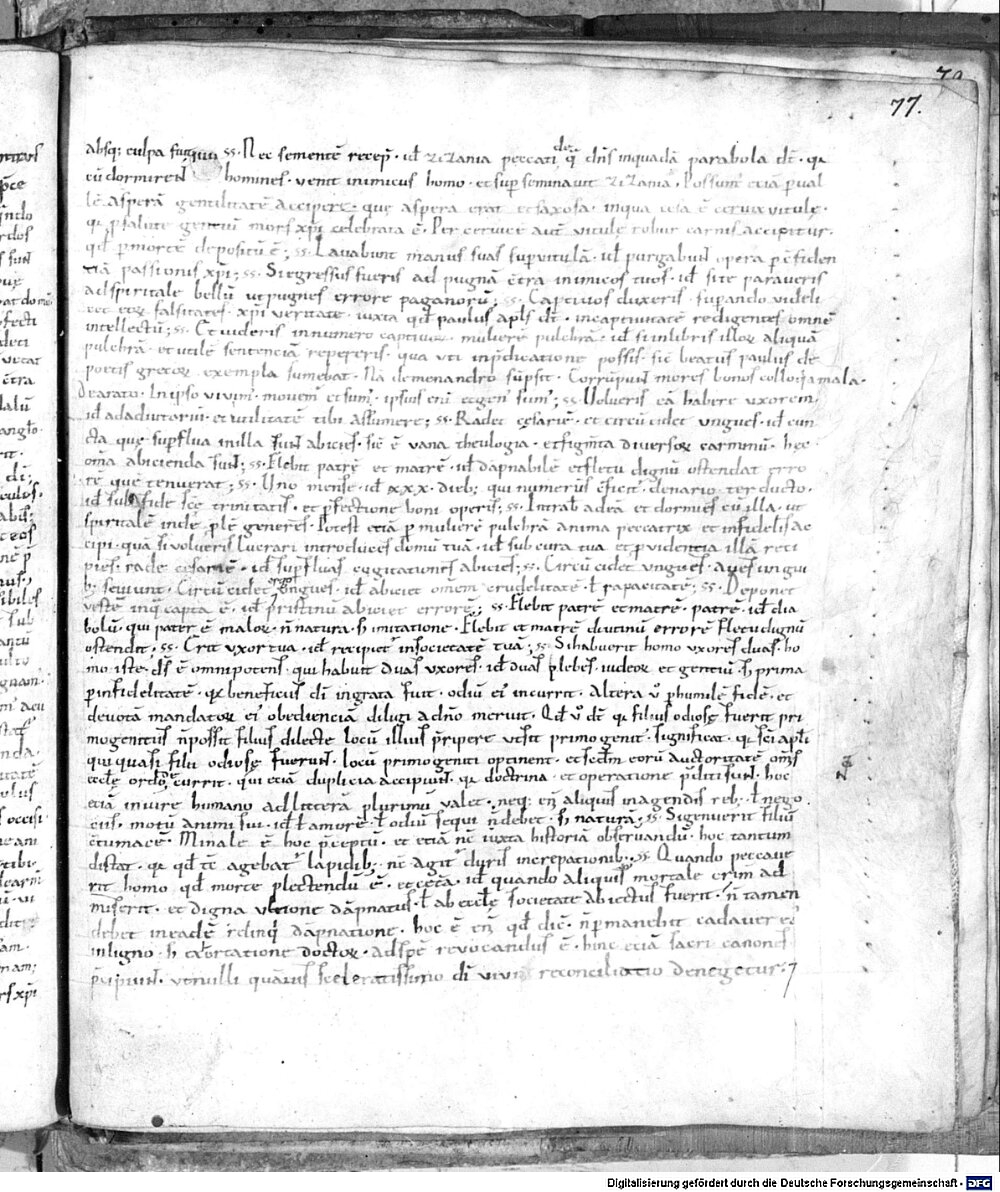 77.
absq; culpa ss. Nec sementē recep̄. id zizania peccati de q̄ dn̄s inquadā parabola dt̄. q̄
cū dormirent homines. venit inimicus homo. et sup seminauit zizania. Possum' etiā p ual
lē asperā gentilitatē accipere. que aspera erat et saxosa. inqua cesa ē ceruix uitule.
q̄ p salute gentiū mors xp̄i celebrata ē. Per ceruicē aut̄ uitule robur carnis accipitur.
qd̄ p mortē depositū ē; ss. Lauabunt manus suas sup uitulā. id purgabunt opera p c̄fiden
tiā passionis xp̄i; ss. Si egressus fueris ad pugnā c̄tra inimicos tuos. id si te paraueris
ad spiritale bellū ut pugnes errore paganorū; ss. Captiuos duxeris. supando uideli
cet eor̄ falsitates. xp̄i ueritate iuxta qd̄ paulus apls dt̄. incaptiuitatē redigentes omnē
intellectū; ss. Et uideris innumero captiuor̄ mulierē pulchrā. id si inlibris illor̄ aliquā
pulchrā. et utilē sententiā reppereris. qua uti inp̄dicatione possis. sic beatus paulus de
poetis grecor̄ exempla sumebat. Nā de menandro sūpsit. Corrūpunt mores bonos colloquia mala.
De arato. Inipso uiuim'. mouem' et sum'. ipsius enī et gen' sum'; ss. Uolueris eā habere uxorem
id ad adiutoriū et utilitatē tibi assumere; ss. Radet cesariē. et circū cidet ungues. id cun
cta que sup̄flua in illa sunt abicies. sic ē uana theologia. et figm̄ta diuersor̄ carminū. hec
om̄a abicienda sunt; ss. Flebit patrē et matrē. id dāpnabilē et fletu dignū ostendat erro
rē que tenuerat; ss. Uno mense. id xxx. dieb; qui numerus c̄ficit' denario ter ducto.
id sub fide sc̄e trinitatis. et p̄fectione boni operis; ss. Intrab adeā et dormies cū illa. ut
spiritalē inde plē generes. Potest etiā p mulierē pulchrā anima peccatrix et infidelis ac
cipi. quā si uolueris lucrari introduces domū tuā. id sub cura tua et p̄uidentia illā reti
pies. rade cesariē. id sup̄fluas cogitationes abicies; ss. Circū cidet ungues. aues ungui
b; seuiunt. Circū cidet ergo ungues. id abiciet om̄em crudelitatē. ł rapacitatē; ss. Deponet
uestē inq̄ capta ē. id pristinū abiciet errorē; ss. Flebit patrē et matrē. patrē. id dia
bolū. qui pater ē malor̄. n̄ natura. s; imitatione. Flebit et matrē diutinū errorē fletu dignū
ostendit; ss. Erit uxor tua. id recipiet' insocietate tua; ss. Si habuerit homo uxores duas. ho
mo iste. d̄s ē omnipotens. qui habuit duas uxores. id duas plebes. iudeor̄ et gentiū. s; prima
p infidelitatē. q̄ beneficiis dī ingrata fuit. odiū ei' incurrit. Altera ū p humilē fidē. et
deuotā mandator̄ ei' obedienciā diligi adn̄o meruit. Qd̄ ū dt̄ q̄ filius odiose fuerit pri
mogenitus n̄ possit filiū dilecte locū illius p̄ripere ut sit primogenit'. significat. q̄ sc̄i apli
qui quasi filii odiose fuerunt. locū primogeniti optinent. et sc̄dm eorū auctoritatē om̄s
eccle ordo currit. qui etiā duplicia accipiunt. q̄ doctrina. et operatione p̄diti sunt. hoc
etiā in iure humano ad litterā plurimū ualet. neq; en̄ aliquis inagendis reb; ł nego
ciis. motū animi sui. id ł amorē. ł odiū sequi n̄ debet. s; naturā; ss. Si genuerit filiū
c̄tumacē. Minale ē hoc p̄ceptū. et etiā nē iuxta historiā obseruandū. hoc tantum
distat. q̄ qd̄ tc̄ agebat' lapidib; nc̄ agit' duris increpationib; ss. Quando peccaue
rit homo qd̄ morte plectendū ē. et cetā. id quando aliquis mortale crim̄ ad
miserit. et digna ultione dāpnatus. ł ab eccle societate abiectus fuerit. n̄ tamen
debet in eadē relinq̄ dāpnatione. hoc ē en̄ qd̄ dic̄. n̄ p manebit cadauer ei'
in ligno. s; exortatione doctor̄. adspē reuocandus ē. hinc etiā sacri canones
p̄cipiunt. ut nulli quāuis sceleratissimo dī uiui reconciliatio denegetur. 7
Digitalisierung gefördert durch die Deutsche Forschungsgemeinschaft - DFG